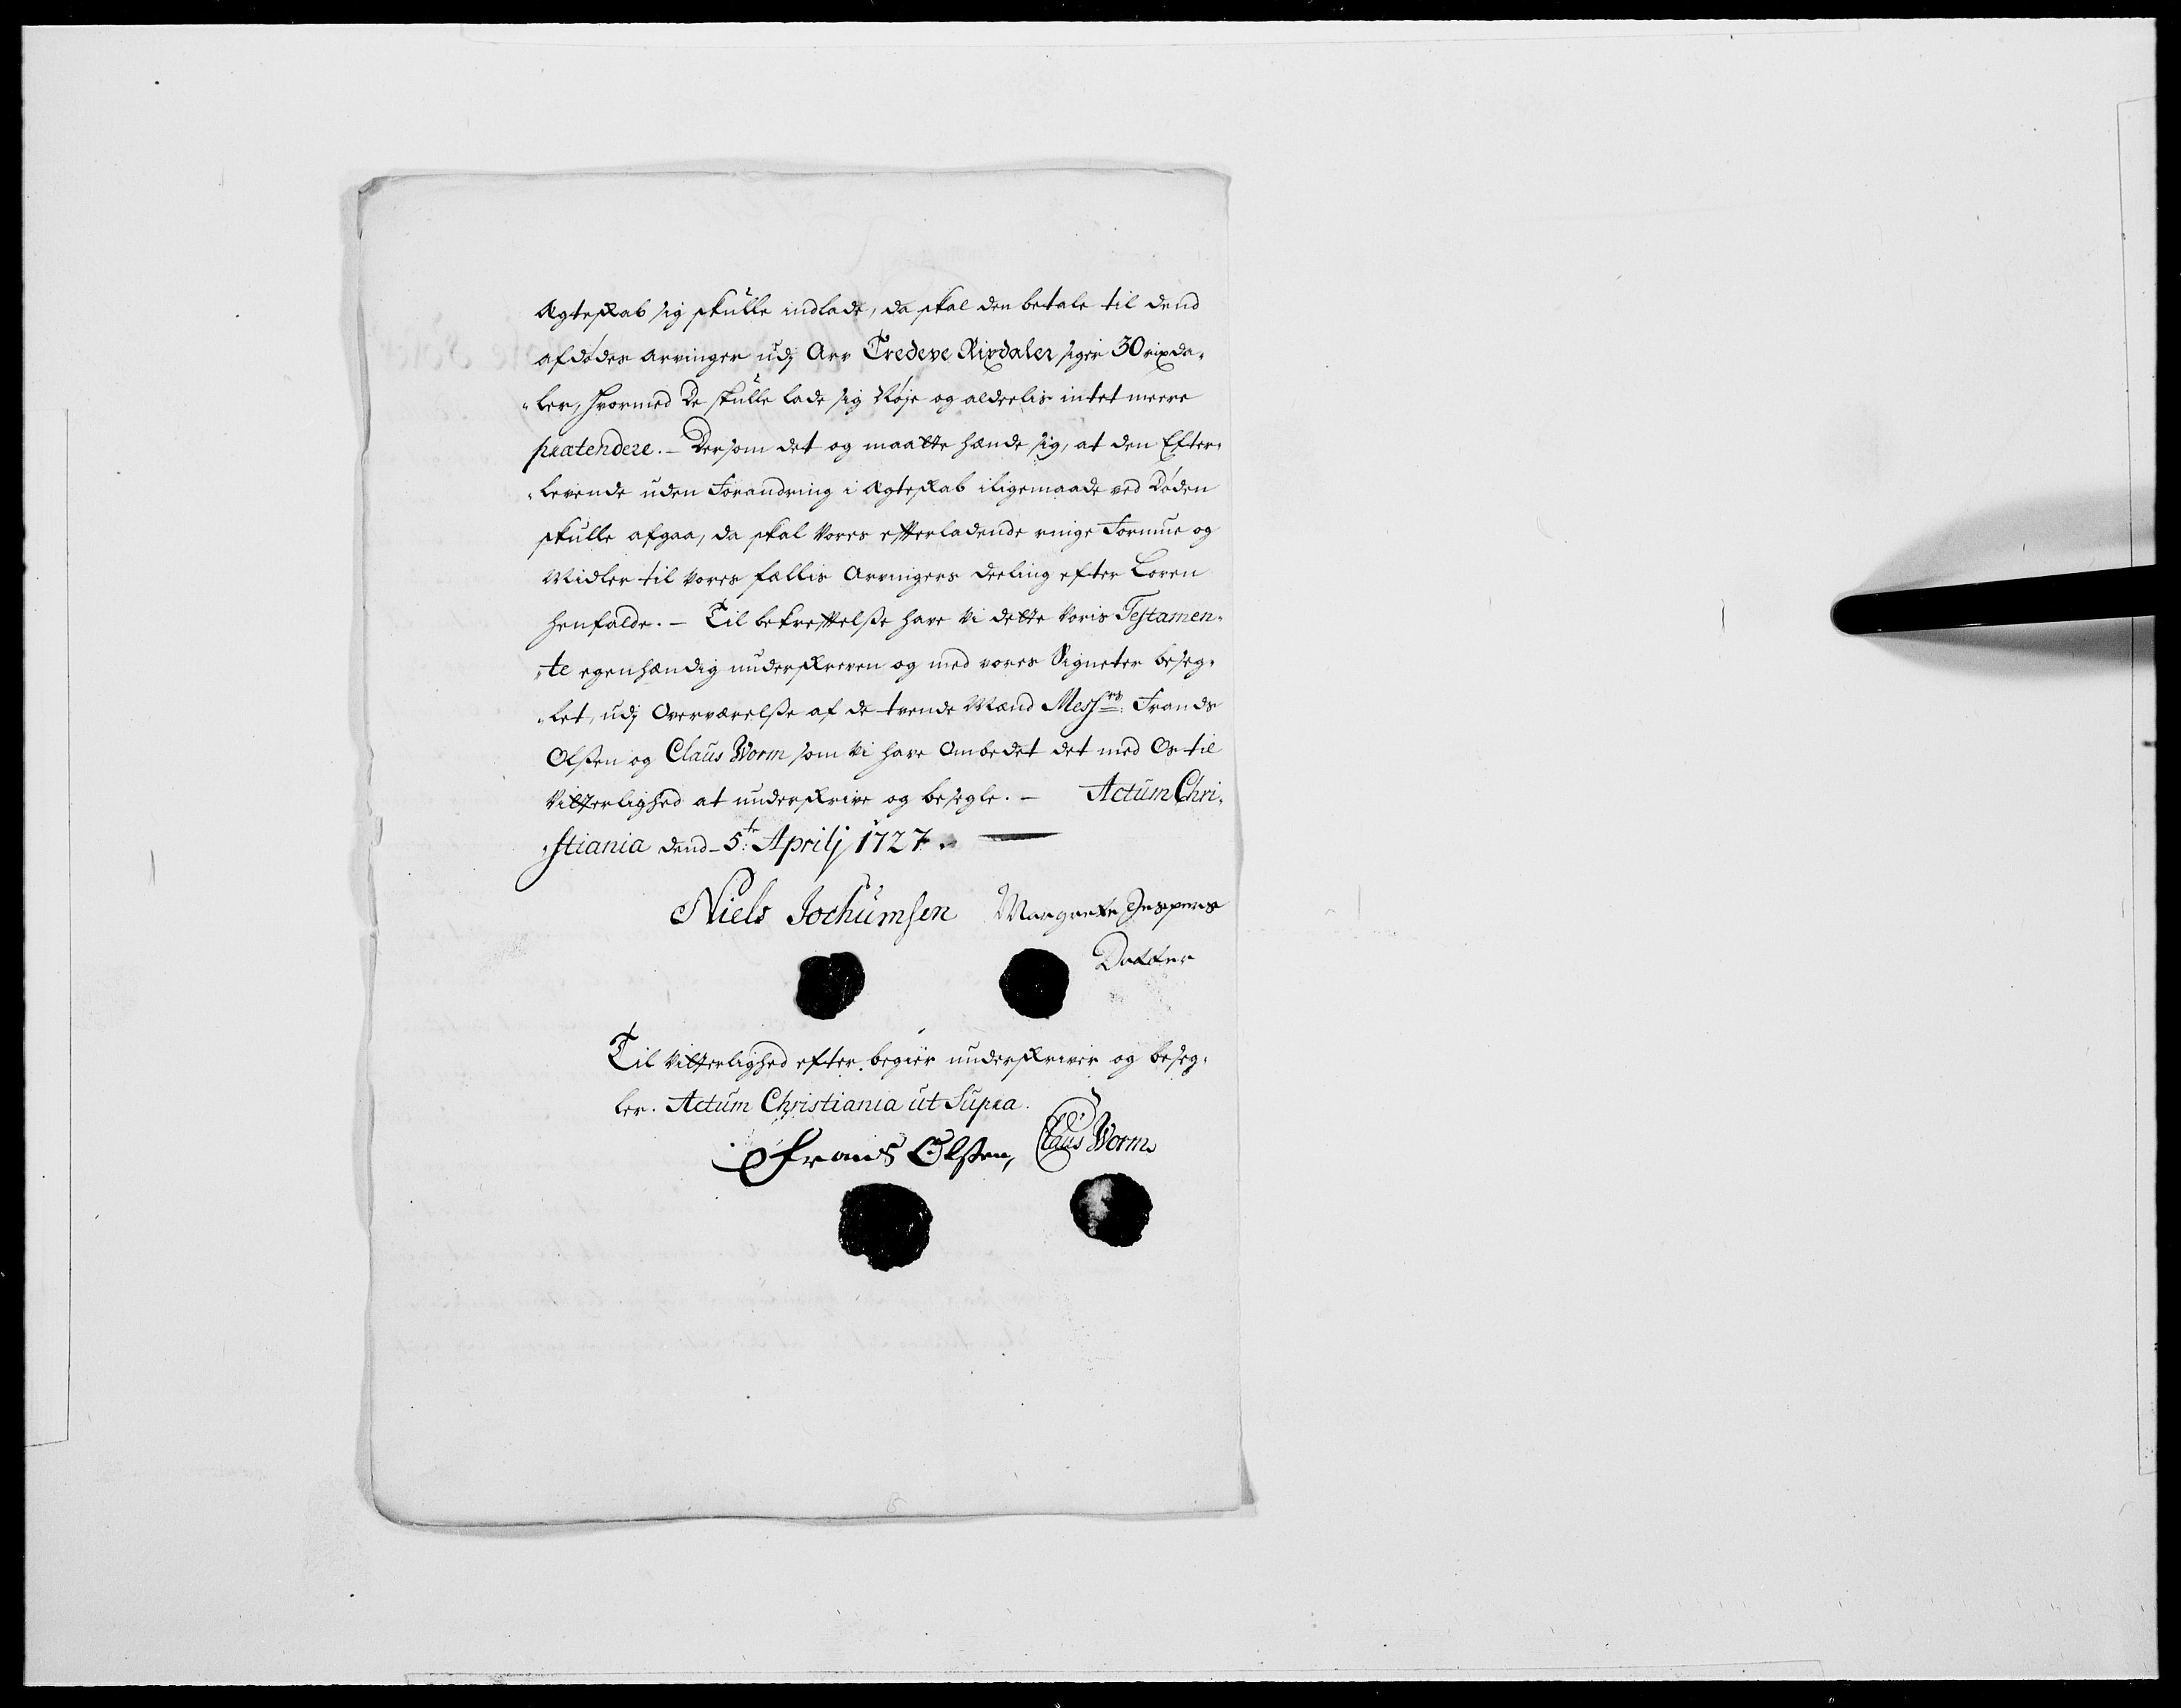 Ægteskab sig skulle indlade, da skal den betale til dend
afdødes arvinger udj Arv Tredeve Rixdaler siger 30 rixda„
„ler, hvormed De skulle lade sig Nøje og aldeelis intet meere
prætendere. – Dersom det og maatte hænde sig, at den Efter„
„levende uden Forandring i Ægteskab iligemaade ved Døden
skulle afgaa, da skal vores efterladende ringe Formue og
Midler til vores fællis Arvingers deeling efter Loven
henfalde. – Til bekreftelse have vi dette voris Testamen„
„te egenhændig underskreven og med vores Signeter beseg„
„let, udj Overværelse af de tvende Mænd Messrs: Frands
Olsen og Claus Worm som vi have Ombedet det med Os til
Vitterlighed at underskrive og besegle. – Actum Chri„
„stiania dend 5te Aprilj 1727. –
Niels Jochumsen Margrete Jespers
Datter
Til Vitterlighed efter begiær underskriver og beseg„
ler. Actum Christiania ut Supra.
Frands Olsen, Claus Worm